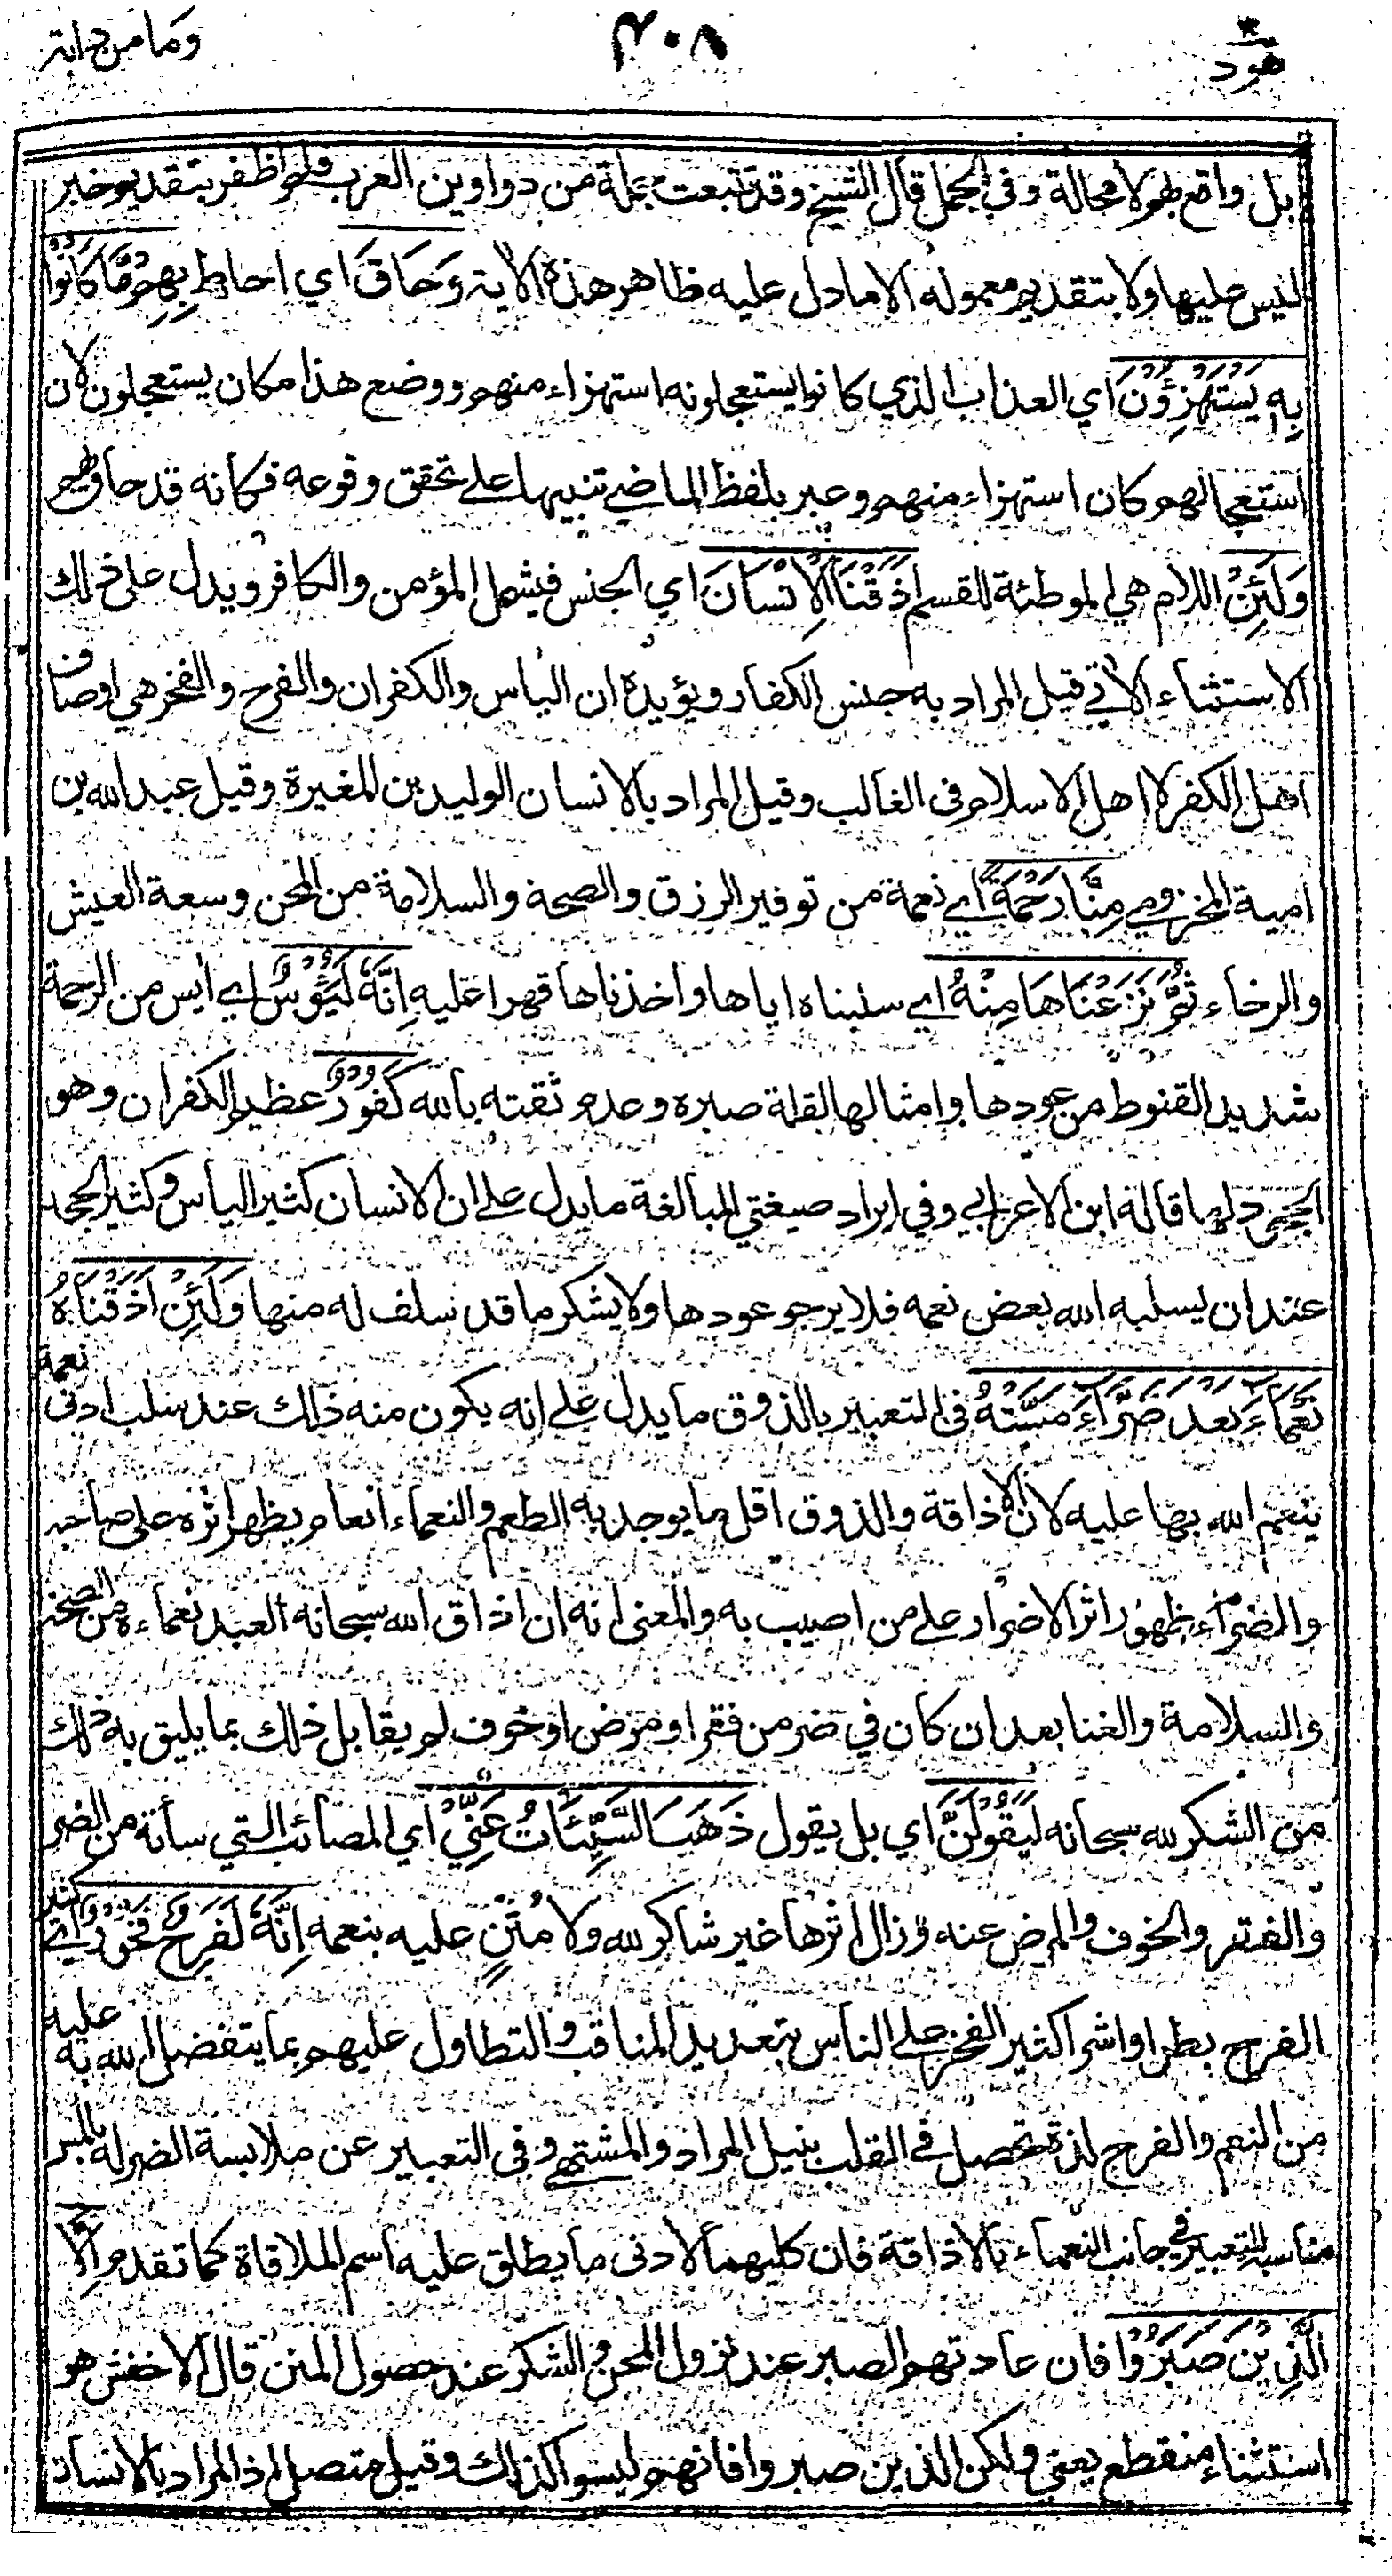 هود ٤٠٨ وما من دابة
بل واقع بهم لا محالة وفي الجمل قال الشيخ وقد تتبعت جملة من دواوين العرب فلم اظفر بتقديم خبر
ليس عليها ولا بتقديم معموله الا ما دل عليه ظاهر هذه الاية وَحَاقَ اي احاط بِهِمْ مَّا كَانُوْا
بِهٖ يَسْتَهْزِؤُنَ اي العذاب الذي كانوا يستعجلونه استهزاء منهم ووضع هذا مكان يستعجلون لان
استعجالهم كان استهزاء منهم وعبر بلفظ الماضي تنبيها على تحقق وقوعه فكانه قد حاق بهم
وَلَئِنْ اللام هي الموطئة للقسم اَذَقْنَا الْاِنْسَانَ اي الجنس فيشمل المؤمن والكافر ويدل على ذلك
الاستثناء الاتي قيل المراد به جنس الكفار ويؤيده ان الياس والكفران والفرح والفخر هي اوصاف
اهل الكفر لا اهل الاسلام في الغالب وقيل المراد بالانسان الوليد بن المغيرة وقيل عبد الله بن
امية المخزومي مِنَّا رَحْمَةً اي نعمة من توفير الرزق والصحة والسلامة من المحن وسعة العيش
والرخاء ثُمَّ نَزَعْنَاهَا مِنْهُ اي سلبناه اياها واخذناها قهرا عليه اِنَّهٗ لَيَؤُسٌ اي ايس من الرحمة
شديد القنوط من عودها وامثالها لقلة صبره وعدم ثقته بالله كَفُوْرٌ عظيم الكفران وهو
الجحود لها قاله ابن الاعرابي وفي ايراد صيغتي المبالغة ما يدل على ان الانسان كثير الياس وكثير الجحد
عند ان يسلبه الله بعض نعمه فلا يرجو عودها ولا يشكر ما قد سلف له منها وَلَئِنْ اَذَقْنَاهُ
نَعْمَاءَ بَعْدَ ضَرَّاءَ مَسَّتْهُ في التعبير بالذوق ما يدل على انه يكون منه ذلك عند سلب ادنى نعمة
ينعم الله بها عليه لان الاذاقة والذوق اقل ما يوجد به الطعم والنعماء انعام يظهر اثره على صاحبه
والضراء ظهور اثر الاضرار على من اصيب به والمعنى انه ان اذاق الله سبحانه العبد نعماءه من الصحة
والسلامة والغنا بعد ان كان في ضر من فقر او مرض او خوف لم يقابل ذلك بما يليق به ذلك
من الشكر لله سبحانه لَيَقُوْلَنَّ اي بل يقول ذَهَبَ السَّيِّئَاتُ عَنِّيْ اي المصائب التي سأته من الضر
والفقر والخوف والمرض عنه وزال اثرها غير شاكر لله ولا مُثْنٍ عليه بنعمه اِنَّهٗ لَفَرِحٌ فَخُوْرٌ اي كثير
الفرح بطرا واشرا كثير الفخر على الناس بتعديد المناقب والتطاول عليهم بما يتفضل الله به عليه
من النعم والفرح لذة تحصل في القلب بنيل المراد والمشتهى وفي التعبير عن ملابسة الضر له بالمس
مناسبة للتعبير في جانب النعماء بالاذاقة فان كليهما لادنى ما يطلق عليه اسم الملاقاة كما تقدم اِلَّا
الَّذِيْنَ صَبَرُوْا فان عادتهم الصبر عند نزول المحن والشكر عند حصول المنن قال الاخفش هو
استثناء منقطع يعني ولكن الذين صبروا فانهم ليسوا كذلك وقيل متصل اذ المراد بالانسان